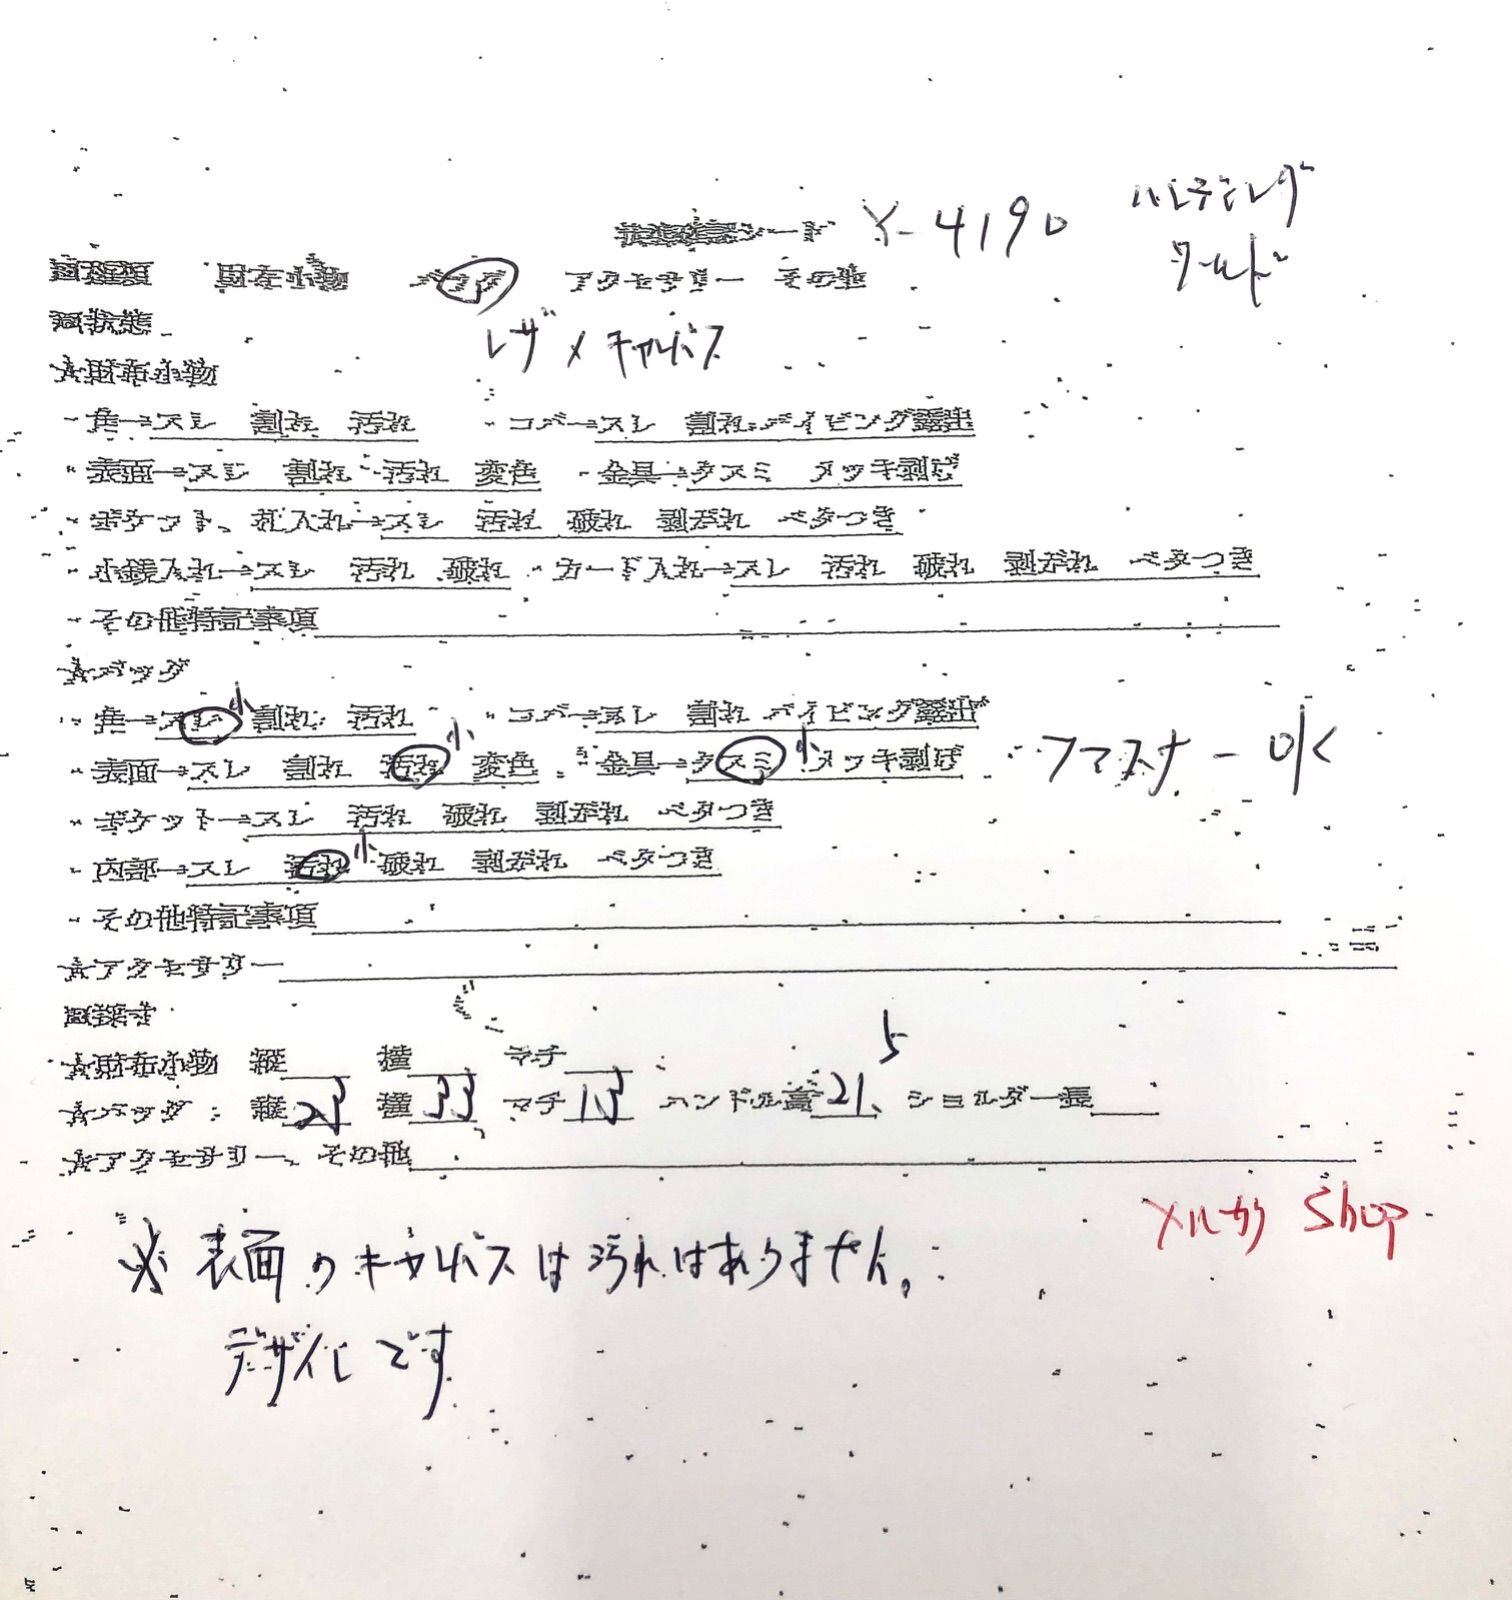 状態確認シート Y-4190 ハンティング
ワールド
□種類 財布小物 バッグ アクセサリー その他
□状態
レザー×キャンバス
☆財布小物
・角→スレ 割れ 汚れ ・コバ→スレ 割れ パイピング露出
・表面→スレ 割れ 汚れ 変色 ・金具→クスミ メッキ剥げ
・ポケット、札入れ→スレ 汚れ 破れ 剥がれ ベタつき
・小銭入れ→スレ 汚れ 破れ ・カード入れ→スレ 汚れ 破れ 剥がれ ベタつき
・その他特記事項
☆バッグ
・角→スレ小 割れ 汚れ ・コバ→スレ 割れ パイピング露出
・表面→スレ 割れ 汚れ小 変色 ・金具→クスミ小 メッキ剥げ ファスナー
・ポケット→スレ 汚れ 破れ 剥がれ ベタつき
・内部→スレ 汚れ小 破れ 剥がれ ベタつき
・その他特記事項
☆アクセサリー
□採寸
5
☆財布小物 縦 横 マチ
☆バッグ 縦23 横33 マチ13 ハンドル高21. ショルダー長
☆アクセサリー、その他
メルカリ Shop
※表面のキャンバスは汚れはありません。
デザインです